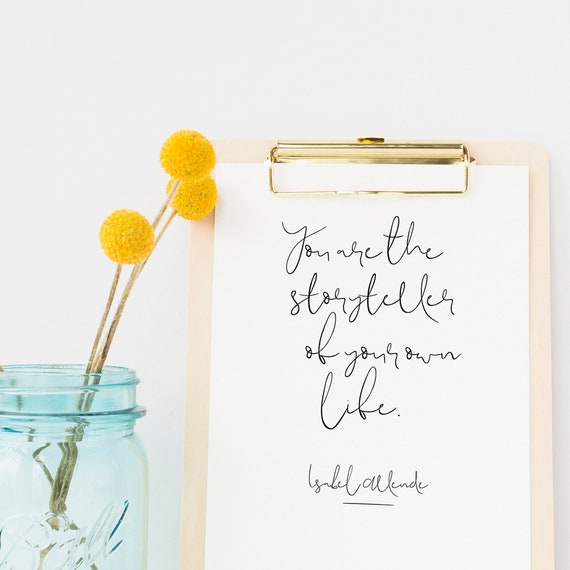 You are the
storyteller
of your own
life.
Isabel Allende